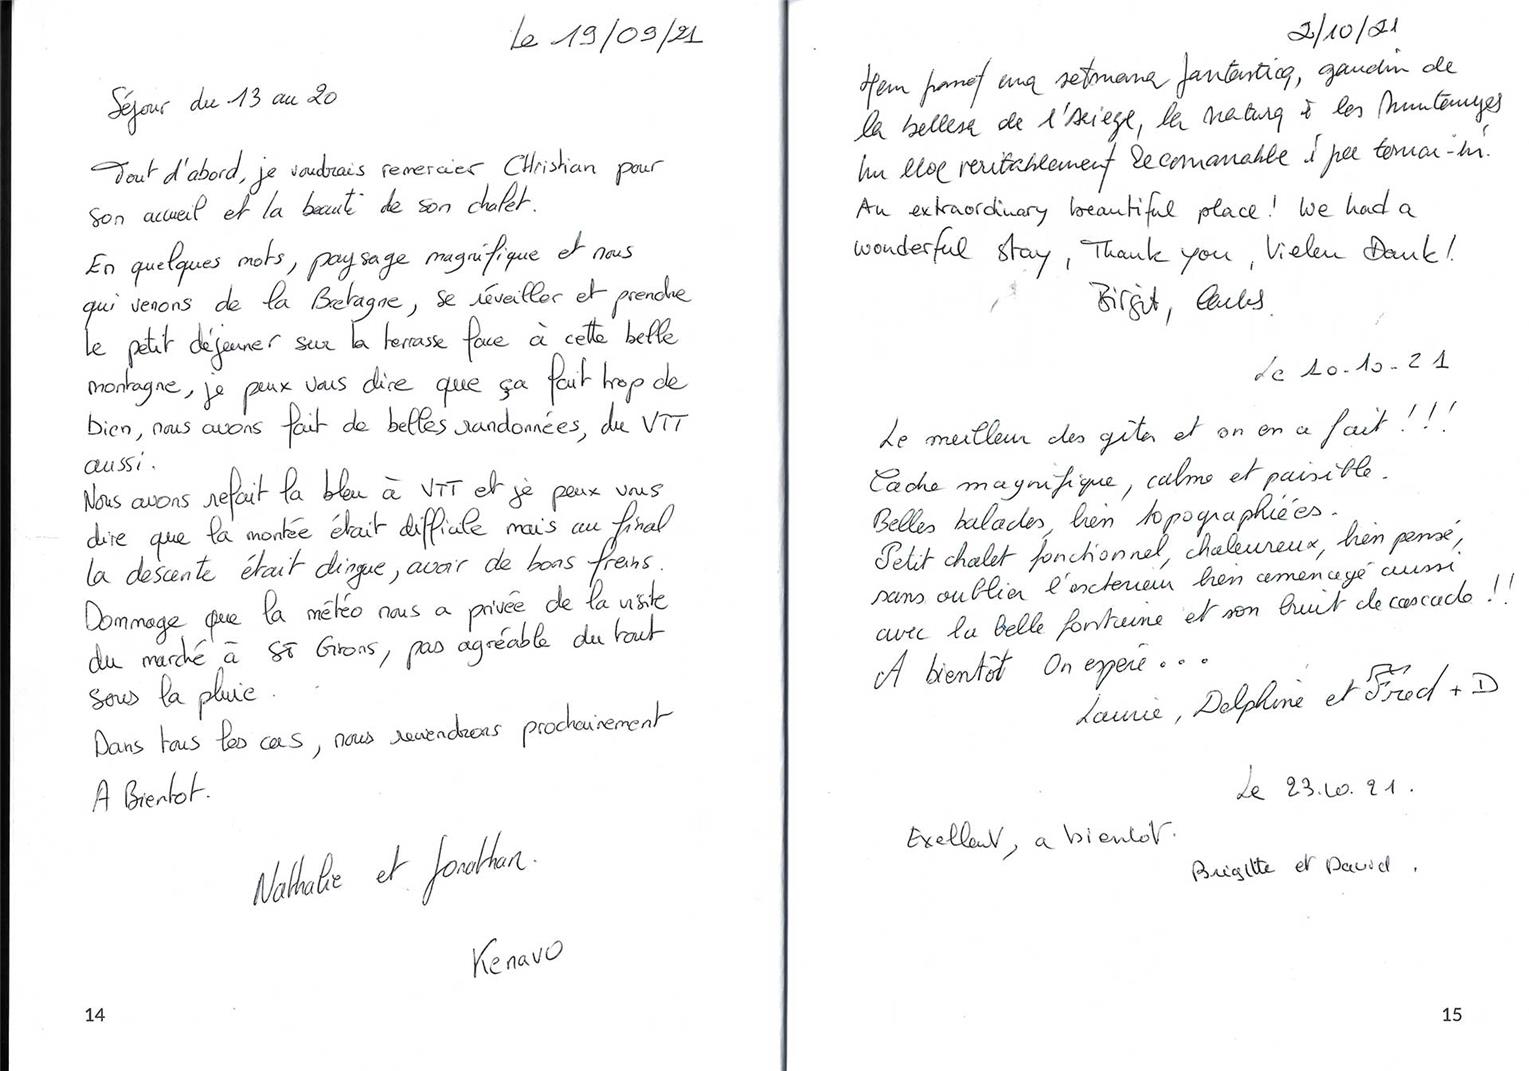 Le 19/09/21
Séjour du 13 au 20
Tout d'abord, je voudrais remercier CHristian pour
son accueil et la beauté de son chalet.
En quelques mots, paysage magnifique et nous
qui venons de la Bretagne, se réveiller et prendre
le petit déjeuner sur la terrasse face à cette belle
montagne, je peux vous dire que ça fait trop de
bien, nous avons fait de belles randonnées, du VTT
aussi.
Nous avons refait la bleu à VTT et je peux vous
dire que la montée était difficile mais au final
la descente était dingue, avoir de bons freins.
Dommage que la météo nous a privée de la visite
du marché à St Girons, pas agréable du tout
sous la pluie.
Dans tous les cas, nous reviendrons prochainement
A Bientot.
Nathalie et Jonathan.
Kenavo
14
2/10/21
Hem passat una setmana fantastica, gaudin de
la bellesa de l'Ariege, la natura i les muntanyes
Un lloc veritablement recomanable i per tornar-hi.
An extraordinary beautiful place! We had a
wonderful stay, Thank you, Vielen Dank!
Birgit, Carles.
Le 10-10-21
Le meilleur des gites et on en a fait!!!
Cadre magnifique, calme et paisible.
Belles balades, bien topographiées.
Petit chalet fonctionnel, chaleureux, bien pensé,
sans oublier l'exterieur bien amenagé aussi
avec la belle fontaine et son bruit de cascade!!
A bientôt On espere...
Laurie, Delphine et Fred + D
Le 23.10.21.
Exellent, a bientot.
Brigitte et David.
15